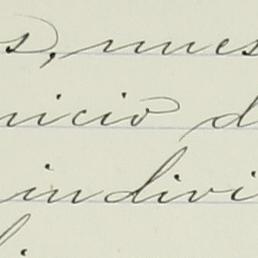 s, nues
nicio d
indivi